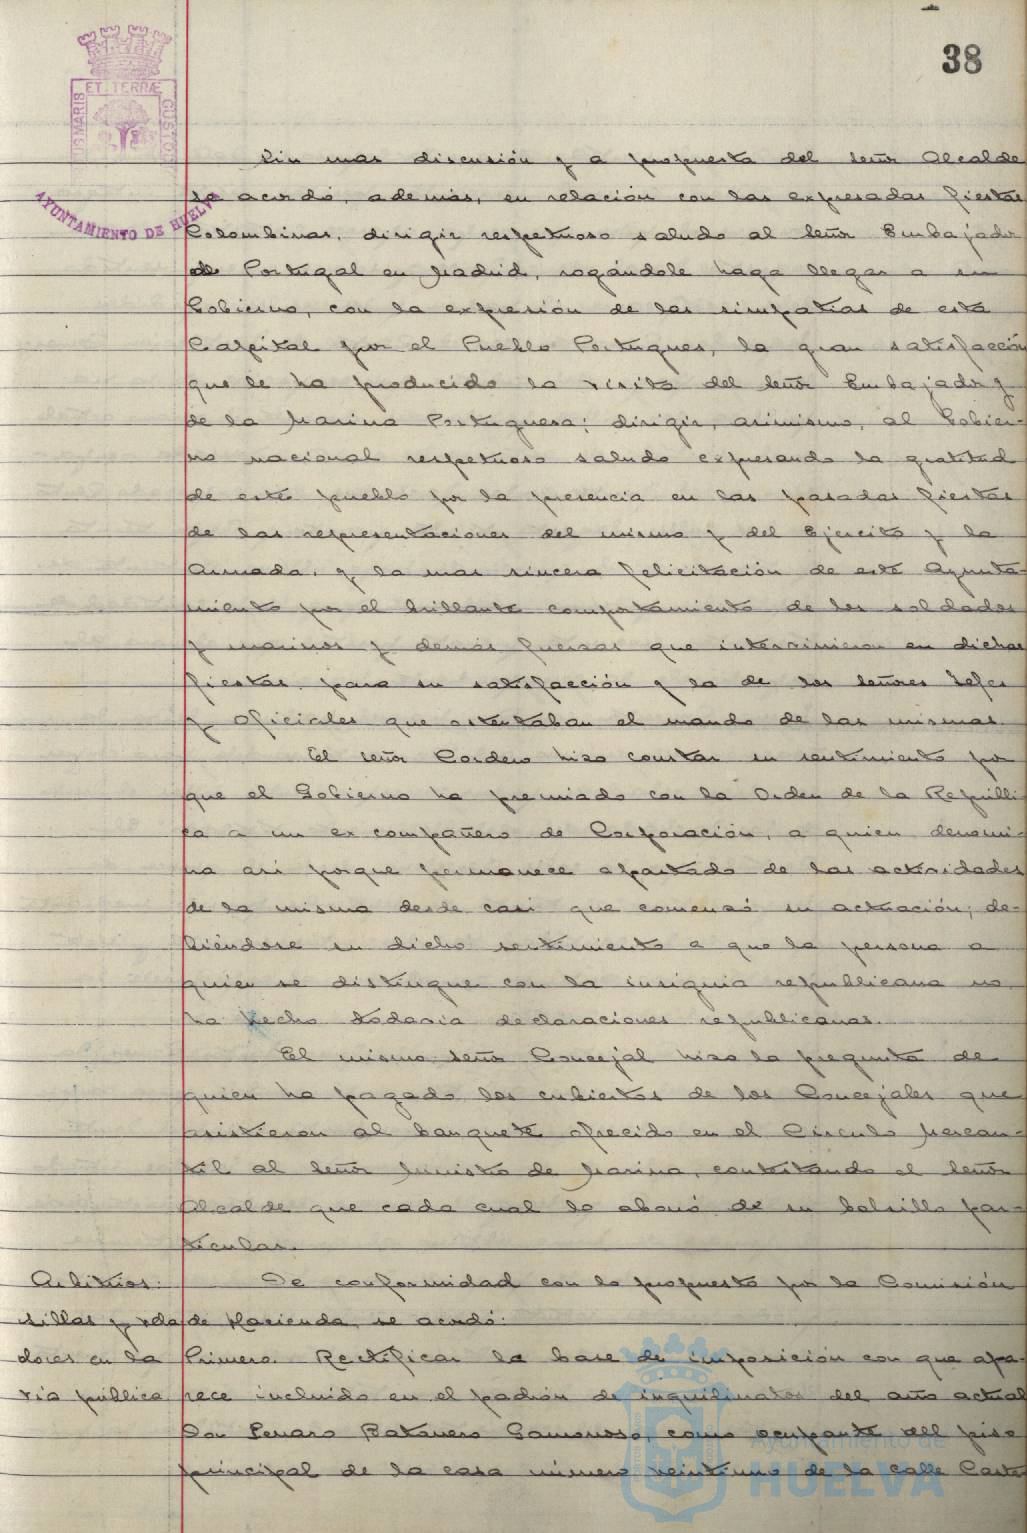 38
PORTUS MARIS ET TERRÆ CUSTODIA
AYUNTAMIENTO DE HUELVA
Sin mas discusión y a propuesta del señor Alcalde
se acordó, además, en relación con las expresadas fiestas
Colombinas, dirigir respetuoso saludo al Señor Embajador
de Portugal en Madrid, rogándole haga llegar a su
Gobierno, con la expresión de las simpatias de esta
Capital por el Pueblo Portugues, la gran satisfacción
que le ha producido la visita del Señor Embajador y
de la Marina Portuguesa; dirigir, asimismo, al Gobier-
no nacional respetuoso saludo expresando la gratitud
de este pueblo por la presencia en las pasadas fiestas
de las representaciones del mismo y del Ejercito y la
Armada, y la mas sincera felicitación de este Ayunta-
miento por el brillante comportamiento de los soldados
y marinos y demás fuerzas que intervinieron en dichas
fiestas, para su satisfacción y la de los señores Jefes
y Oficiales que ostentaban el mando de las mismas.
El señor Cordero hizo constar su sentimiento por
que el Gobierno ha premiado con la Orden de la Repúbli-
ca a un ex compañero de Corporación, a quien denomi-
na asi porque permanece apartado de las actividades
de la misma desde casi que comenzó su actuación; de-
biéndose su dicho sentimiento a que la persona a
quien se distingue con la insignia republicana no
ha hecho todavia declaraciones republicanas.
El mismo señor Concejal hizo la pregunta de
quien ha pagado los cubiertos de los Concejales que
asistieron al banquete ofrecido en el Circulo Mercan-
til al Señor Ministro de Marina, contestando el Señor
Alcalde que cada cual lo abonó de su bolsillo par-
ticular.
Arbitrios:
sillas y vela
dores en la
via pública
De conformidad con lo propuesto por la Comisión
de Hacienda, se acordó:
Primero. Rectificar la base de imposición con que apa-
rece incluido en el padrón de inquilinatos del año actual
Don Genaro Batanero Gamonoso, como ocupante del piso
principal de la casa número veintiuno de la calle Caste-
Ayuntamiento de
HUELVA